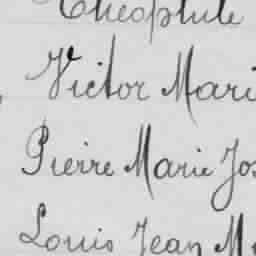 Théophile
Victor Mari
Pierre Marie Jos
Louis Jean M